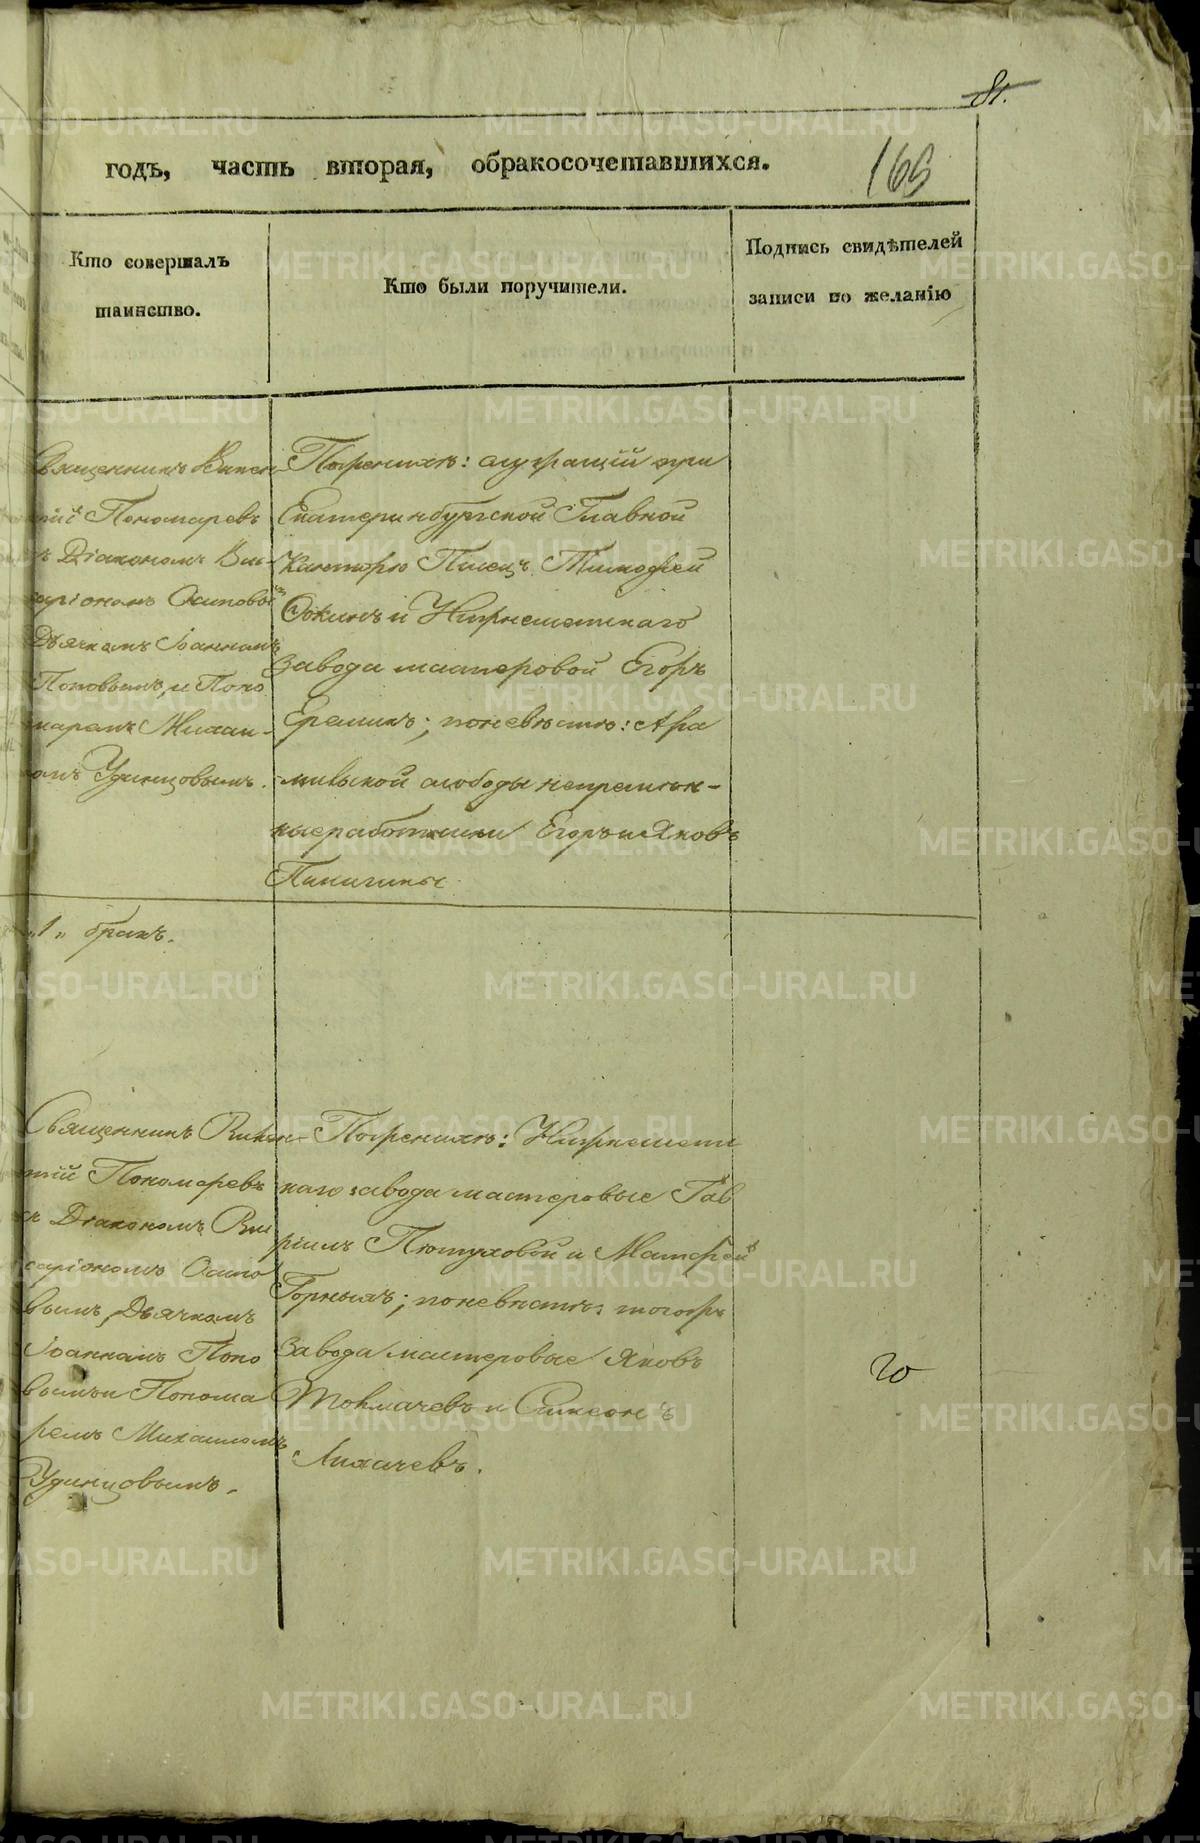 81.
годъ, часть вторая, обракосочетавшихся.
169
Кто совершалъ
таинство.
Кто были поручители.
Подпись свидѣтелей
записи по желанію
Священникъ Викен-
тій Пономаревъ
съ Діакономъ Вис-
саріономъ Осиповымъ
Дьячкомъ Іоанномъ
Поповымъ, и Поно
маремъ Михаи-
ломъ Удинцовымъ.
По женихѣ: служащій при
Екатеринбургской Главной
Канторѣ Писецъ Тимофей
и Нижнеисетскаго
завода мастеровой Егоръ
Ереминъ; по невѣстѣ: Ара
мильской слободы непремѣн-
ные работники Егоръ и Яковъ
Пинигины
„1„ бракъ.
Священникъ Викен-
тій Пономаревъ
съ Діакономъ Вис
саріономъ Осипо
вымъ, Дьячкомъ
Іоанномъ Попо
вымъ и Понома
ремъ Михаиломъ
Удинцовымъ.
По женихѣ: Нижнеисетс
каго завода мастеровые Гав
ріилъ Пѣтуховой и Матфей
Горныхъ; по невѣстѣ: того жъ
завода мастеровые Яковъ
Токмачевъ и Симеонъ
Лихачевъ.
20
METRIKI.GASO-URAL.RU